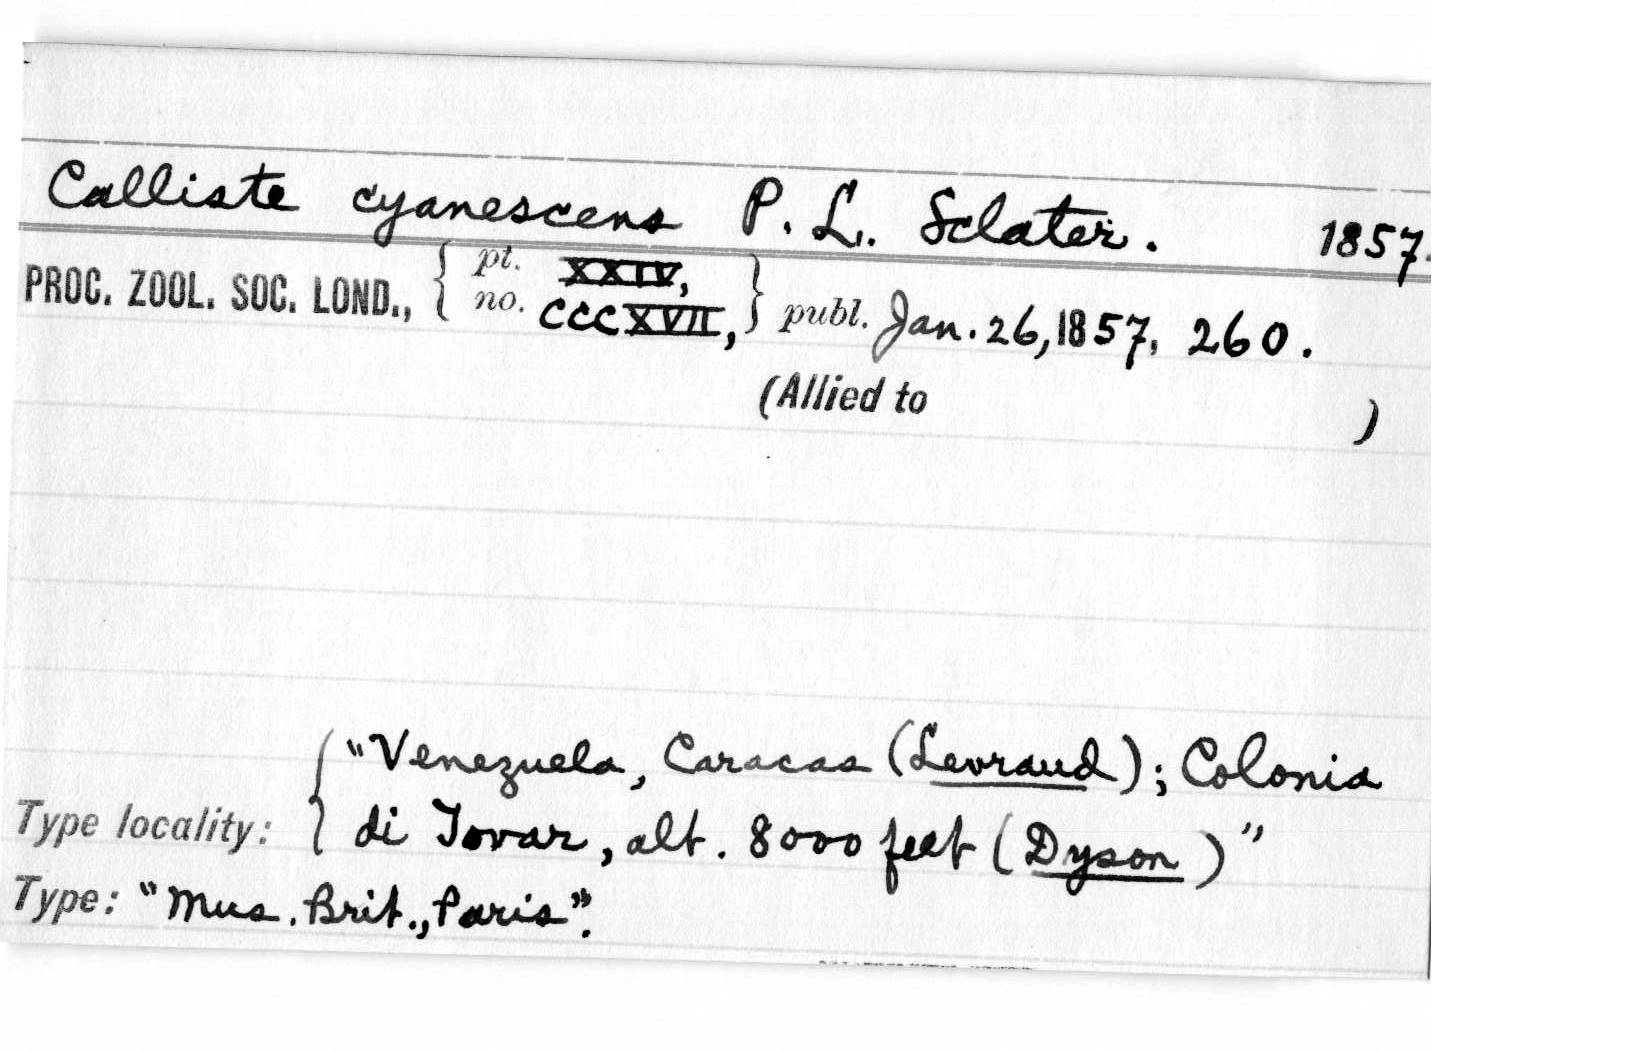 Calliste cyanescens P. L. Sclater. 1857.
PROC. ZOOL. SOC. LOND., { pt. XXIV, no. CCCXVII, } publ. Jan. 26, 1857, 260.
(Allied to )
"Venezuela, Caracas (Levraud); Colonia
Type locality: { di Tovar, alt. 8000 feet (Dyson)"
Type: "Mus. Brit., Paris".